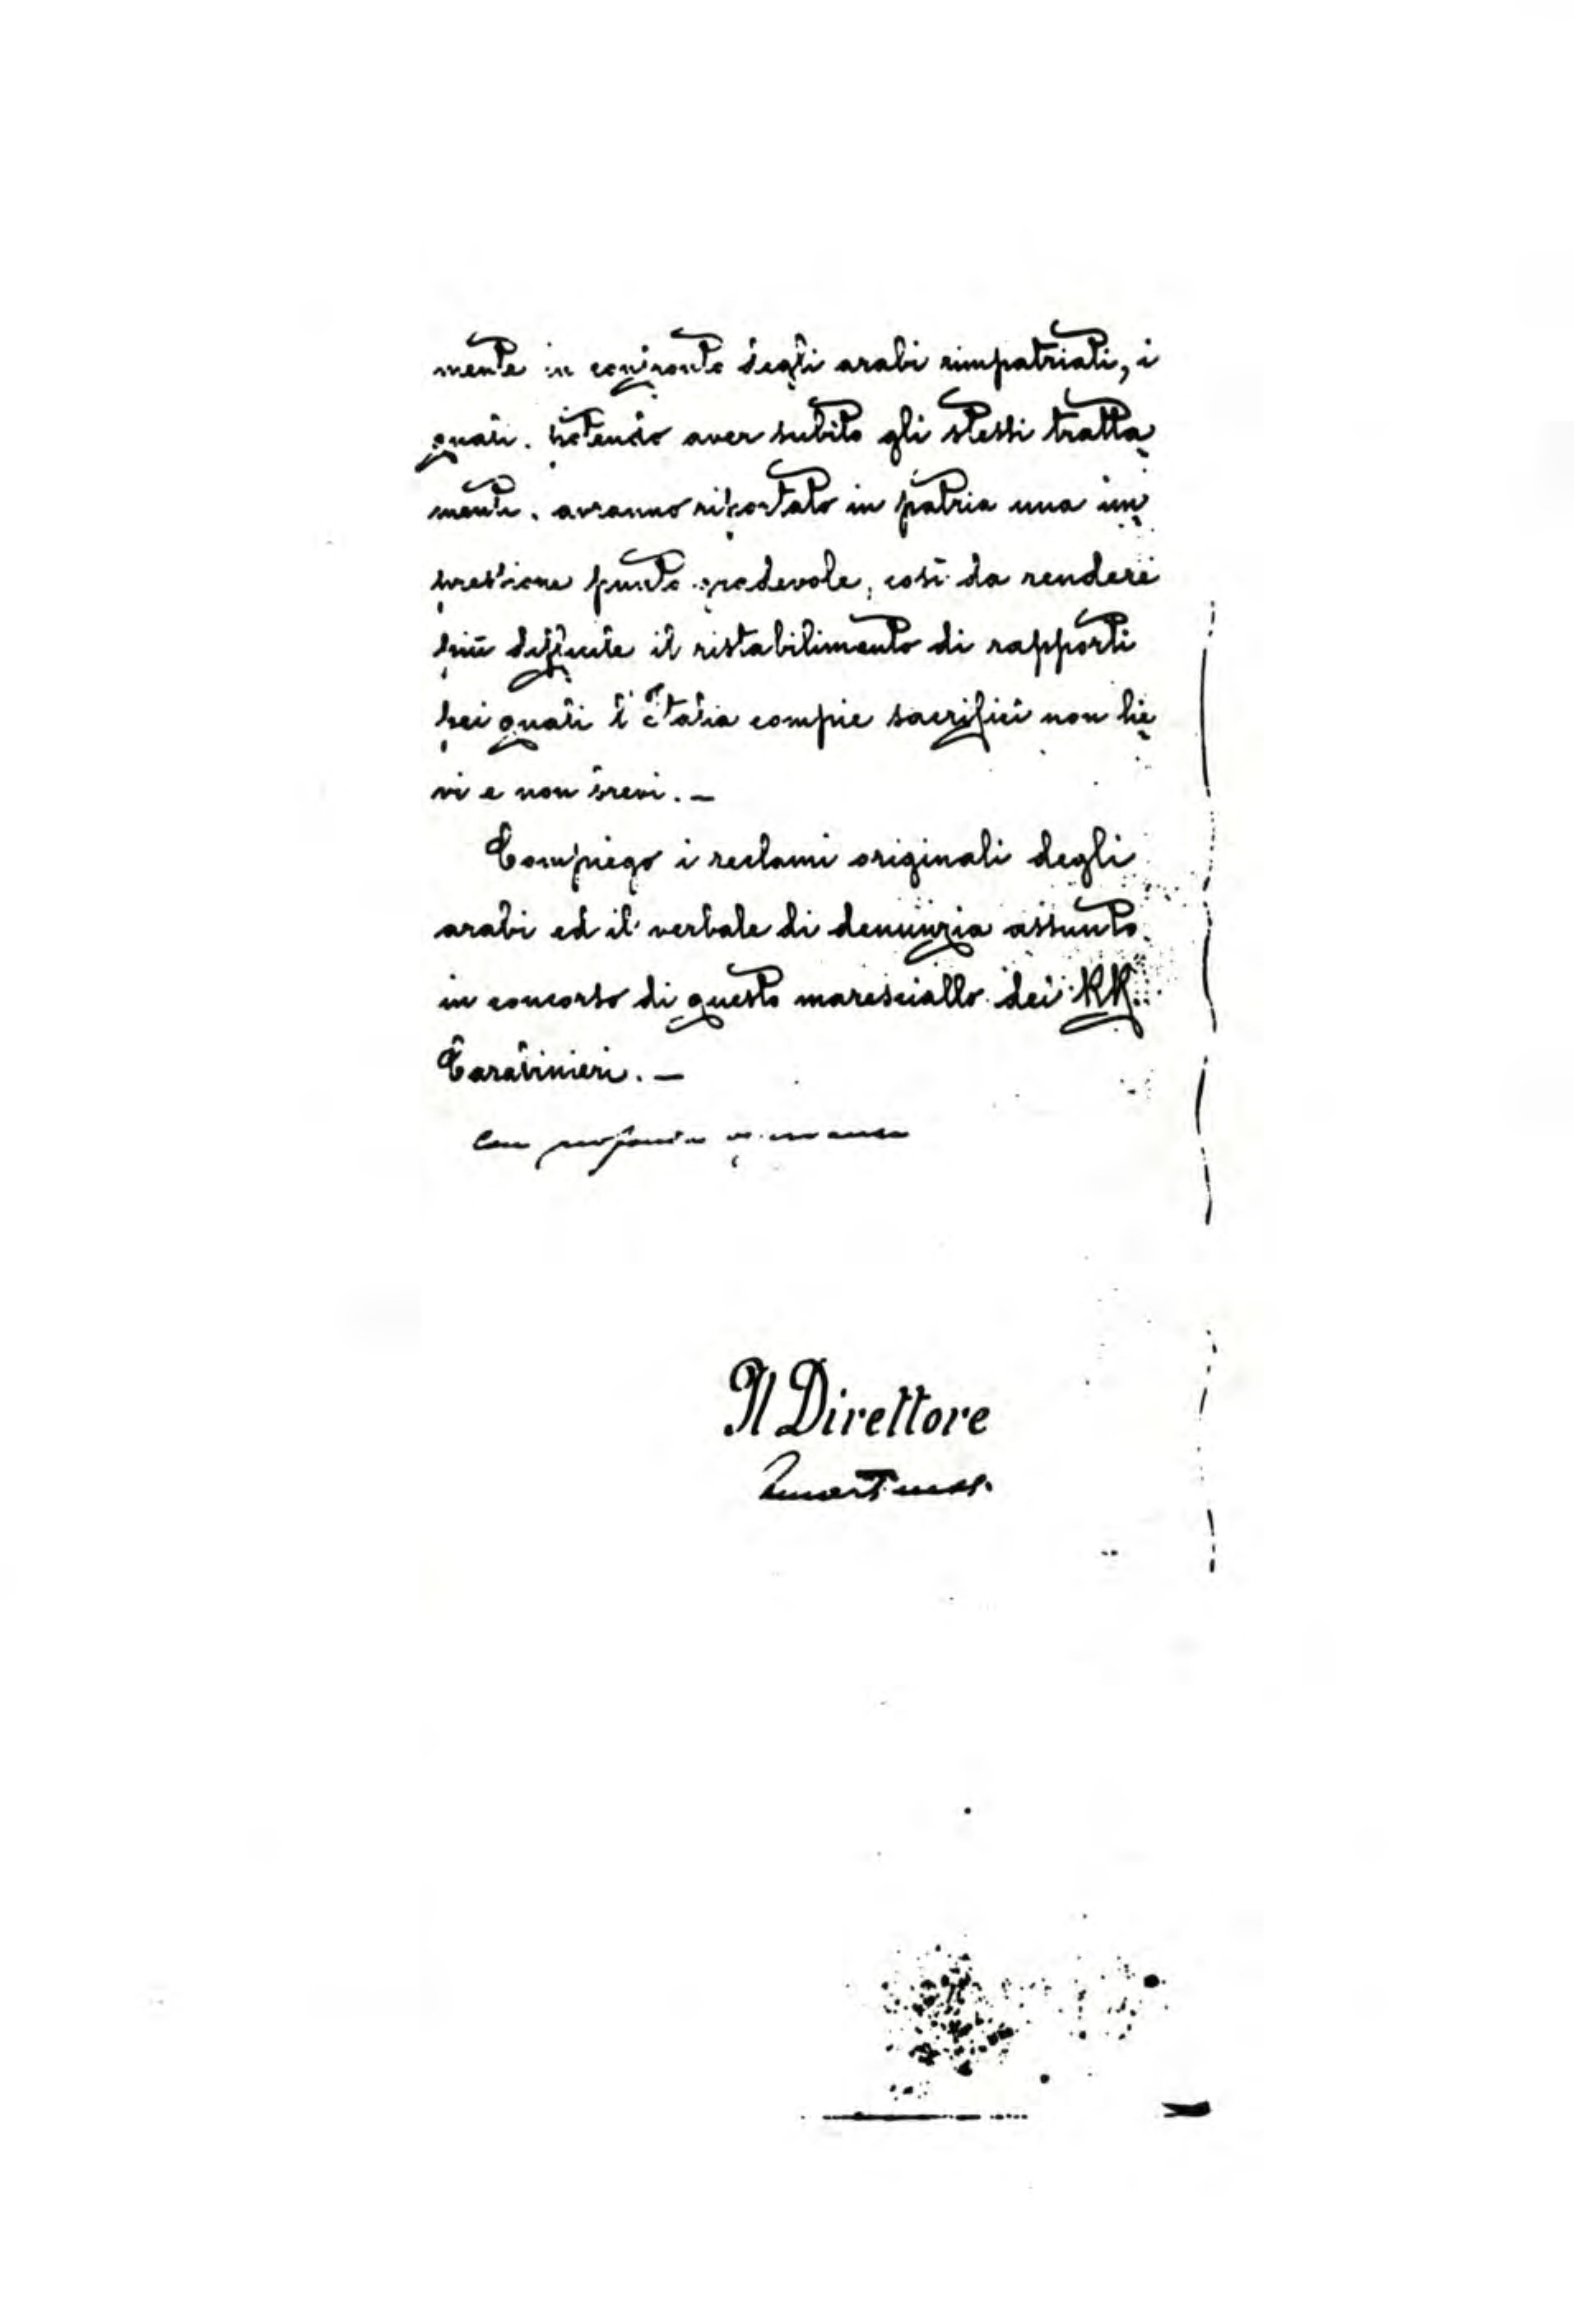 mente in confronto degli arabi rimpatriati, i
quali, potendo aver subito gli stessi tratta
menti, avranno riportato in patria una im
pressione punto gradevole, così da rendere
più difficile il ristabilimento di rapporti
pei quali l'Italia compie sacrifici non lie
vi e non brevi. —
Compiego i reclami originali degli
arabi ed il verbale di denunzia assunto
in concorso di questo maresciallo dei RR.
Carabinieri. —
Con profonda osservanza
Il Direttore